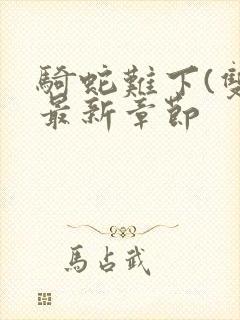 騎蛇難下(雙
最新章節
馬占武